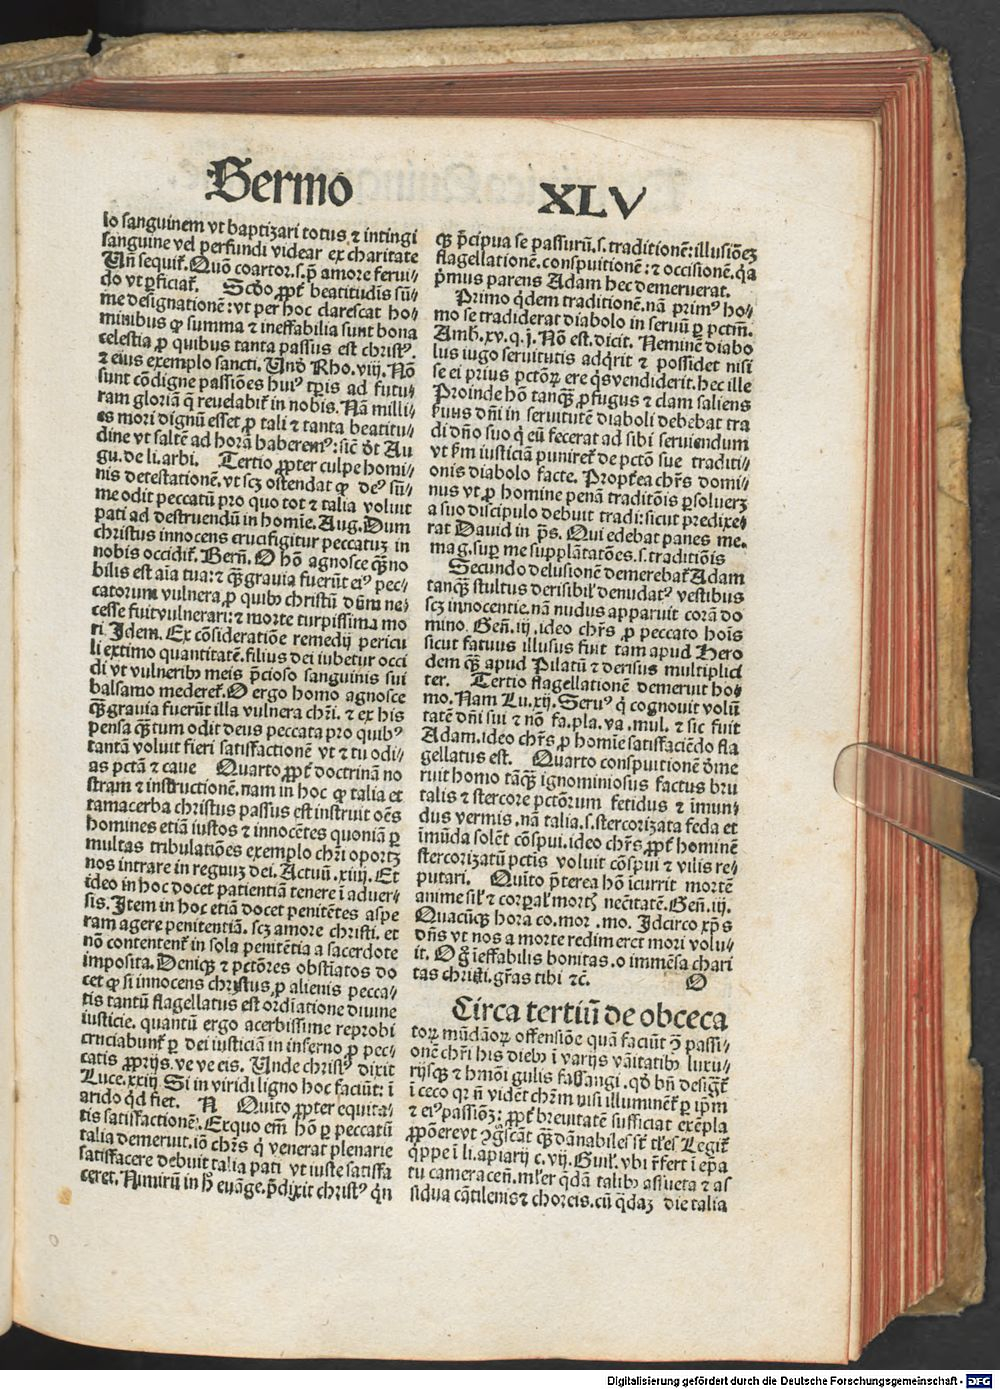 Sermo XLV
lo sanguinem vt baptizari totus ⁊ intingi
sanguine vel perfundi videar ex charitate
Uñ sequit᷑. Quō coartor.s.p̄ amore ferui⸗
do vt ꝑficiat᷑. Scḋo ꝓpt᷑ beatitudīs sū⸗
me designationē: vt per hoc clarescat ho⸗
minibus ꝙ summa ⁊ ineffabilia sunt bona
celestia ꝓ quibus tanta passus est christꝰ.
⁊ eius exemplo sancti. Unḋ Rho. viij. Nō
sunt cōdigne passiōes huiꝰ tꝑis ad futu⸗
ram gloriā q̄ reuelabit᷑ in nobis. Nā milli⸗
es mori dignū esset ꝓ tali ⁊ tanta beatitu⸗
dine vt saltē ad horā haberemꝰ: sic̄ ḋt Au
gu. de li. arbi. Tertio ꝓpter culpe homi⸗
nis detestationē. vt scꝫ ostendat ꝙ deꝰ sū⸗
me odit peccatū pro quo tot ⁊ talia voluit
pati ad destruendū in homīe. Aug. Dum
christus innocens crucifigitur peccatuꝫ in
nobis occidit᷑. Berñ. O hō agnosce ꝙ̄ no
bilis est aīa tua: ⁊ ꝙ̄ grauia fuerūt eiꝰ pec⸗
catorum vulnera, ꝓ quibꝰ christū dn̄m ne⸗
cesse fuit vulnerari: ⁊ morte turpissima mo
ri. Idem. Ex cōsideratiōe remedij pericu
li extimo quantitatē. filius dei iubetur occi
di vt vulneribꝰ meis p̄cioso sanguinis sui
balsamo mederet᷑. O ergo homo agnosce
ꝙ̄ grauia fuerūt illa vulnera chr̄i. ⁊ ex his
pensa ꝙ̄tum odit deus peccata pro quibꝰ
tantā voluit fieri satisfactionē vt ⁊ tu odi⸗
as pctā ⁊ caue Quarto ꝓpt᷑ doctrinā no
stram ⁊ instructionē. nam in hoc ꝙ talia et
tamacerba christus passus est instruit oēs
homines etiā iustos ⁊ innocētes quoniā ꝑ
multas tribulatiōes exemplo chr̄i oportꝫ
nos intrare in regnuꝫ dei. Actuū. xiiij. Et
ideo in hoc docet patientiā tenere ī aduer⸗
sis. Item in hoc etiā docet penitētes aspe
ram agere penitentiā. scꝫ amore christi. et
nō contentent᷑ in sola penitētia a sacerdote
imposita. Deniqꝫ ⁊ pctōres obstīatos do
cet ꝙ si innocens christus, ꝓ alienis pecca⸗
tis tantū flagellatus est ordīatione diuine
iusticie. quantū ergo acerbissime reprobi
cruciabunt᷑ ꝑ dei iusticiā in inferno ꝓ pec⸗
catis ꝓprijs. ve ve eis. Unde christꝰ dixit
Luce. xxiij Si in viridi ligno hoc faciūt: ī
arido qḋ fiet. N Quīto ꝓpter equita⸗
tis satisfactionē. Exquo em̄ hō ꝑ peccatū
talia demeruit. iō chr̄s q̇ venerat plenarie
satisfacere debuit talia pati vt iuste satisfa
ceret. Nimirū in hꝭ euāge. p̄dixit christꝰ q̇n
qꝫ p̄cipua se passurū.s. traditionē: illusiōeꝫ
flagellationē. conspuitionē: ⁊ occisionē. q̇a
p̄mus parens Adam hec demeruerat.
Primo q̇dem traditionē. nā primꝰ ho⸗
mo se tradiderat diabolo in seruū ꝑ pctm̄.
Amb. xv. q. j. Nō est. dicit. Neminē diabo
lus iugo seruitutis adq̇rit ⁊ possidet nisi
se ei prius pctōꝝ ere q̇s vendiderit. hec ille
Proinde hō tanꝙ̄ ꝓfugus ⁊ clam saliens
ẜuus dn̄i in seruitutē diaboli debebat tra
di dn̄o suo q̇ eū fecerat ad sibi seruiendum
vt ẜm iusticiā puniret᷑ de pctō sue traditi⸗
onis diabolo facte. Propt᷑ea chr̄s domi⸗
nus vt ꝓ homine penā traditōis ꝑsolueꝫ
a suo discipulo debuit tradi: sicut predixe⸗
rat Dauid in ps̄. Qui edebat panes me.
mag. suꝑ me supplātatōes.s. traditiōis
Secundo delusionē demerebat᷑ Adam
tanꝙ̄ stultus derisibil᷑ denudatꝰ vestibus
scꝫ innocentie. nā nudus apparuit corā do
mino. Geñ. iij. ideo chr̄s ꝓ peccato hoīs
sicut fatuus illusus fuit tam apud Hero
dem ꝙ̄ apud Pilatū ⁊ derisus multiplici
ter. Tertio flagellationē demeruit ho⸗
mo. Nam Lu. xij. Seruꝰ q̇ cognouit volū
tatē dn̄i sui ⁊ nō fa. pla. va. mul. ⁊ sic fuit
Adam. ideo chr̄s ꝓ homīe satisfaciēdo fla
gellatus est. Quarto conspuitionē ḋme
ruit homo tāꝙ̄ ignominiosus factus bru
talis ⁊ stercore pctōrum fetidus ⁊ īmun⸗
dus vermis. nā talia.s. stercorizata feda et
īmūda solēt cōspui. ideo chr̄s ꝓpt᷑ hominē
stercorizatū pctīs voluit cōspui ⁊ vilis re⸗
putari. Quīto p̄terea hō īcurrit mortē
anime sil᷑ ⁊ corꝑal᷑ mortꝭ nec̄itatē. Geñ. iij.
Quacūqꝫ hora co. mor. mo. Idcirco xp̄s
dn̄s vt nos a morte redimeret mori volu⸗
it. O g̊ īeffabilis bonitas. o immēsa chari
tas christi. gr̄as tibi ⁊c. O
Circa tertiū de obceca
toꝝ mūdāoꝝ offensiōe quā faciūt ꝯ̄ passi⸗
onē chr̄i his diebꝰ ī varijs vāitatibꝰ luxu⸗
rijsqꝫ ⁊ hmōi gulis fassangi. qḋ bn̄ desigt᷑
ī ceco qr n̄ vidēt chr̄m nisi illuminēt᷑ ꝑ ip̄m
⁊ eiꝰ passiōꝫ: ꝓpt᷑ breuitatē sufficiat exēpla
ꝓpōere vt ꝯgscāt ꝙ̄ dānabiles sīt tl̄es Legit᷑
q̇ppe ī li. apiarij c. vij. Guil᷑. vbi r̄fert ī ep̄a
tu cameraceñ. ml̄er q̇dā talibꝰ assueta ⁊ as
sidua cātilenis ⁊ choreis. cū q̇daꝫ die talia
Digitalisierung gefördert durch die Deutsche Forschungsgemeinschaft - DFG